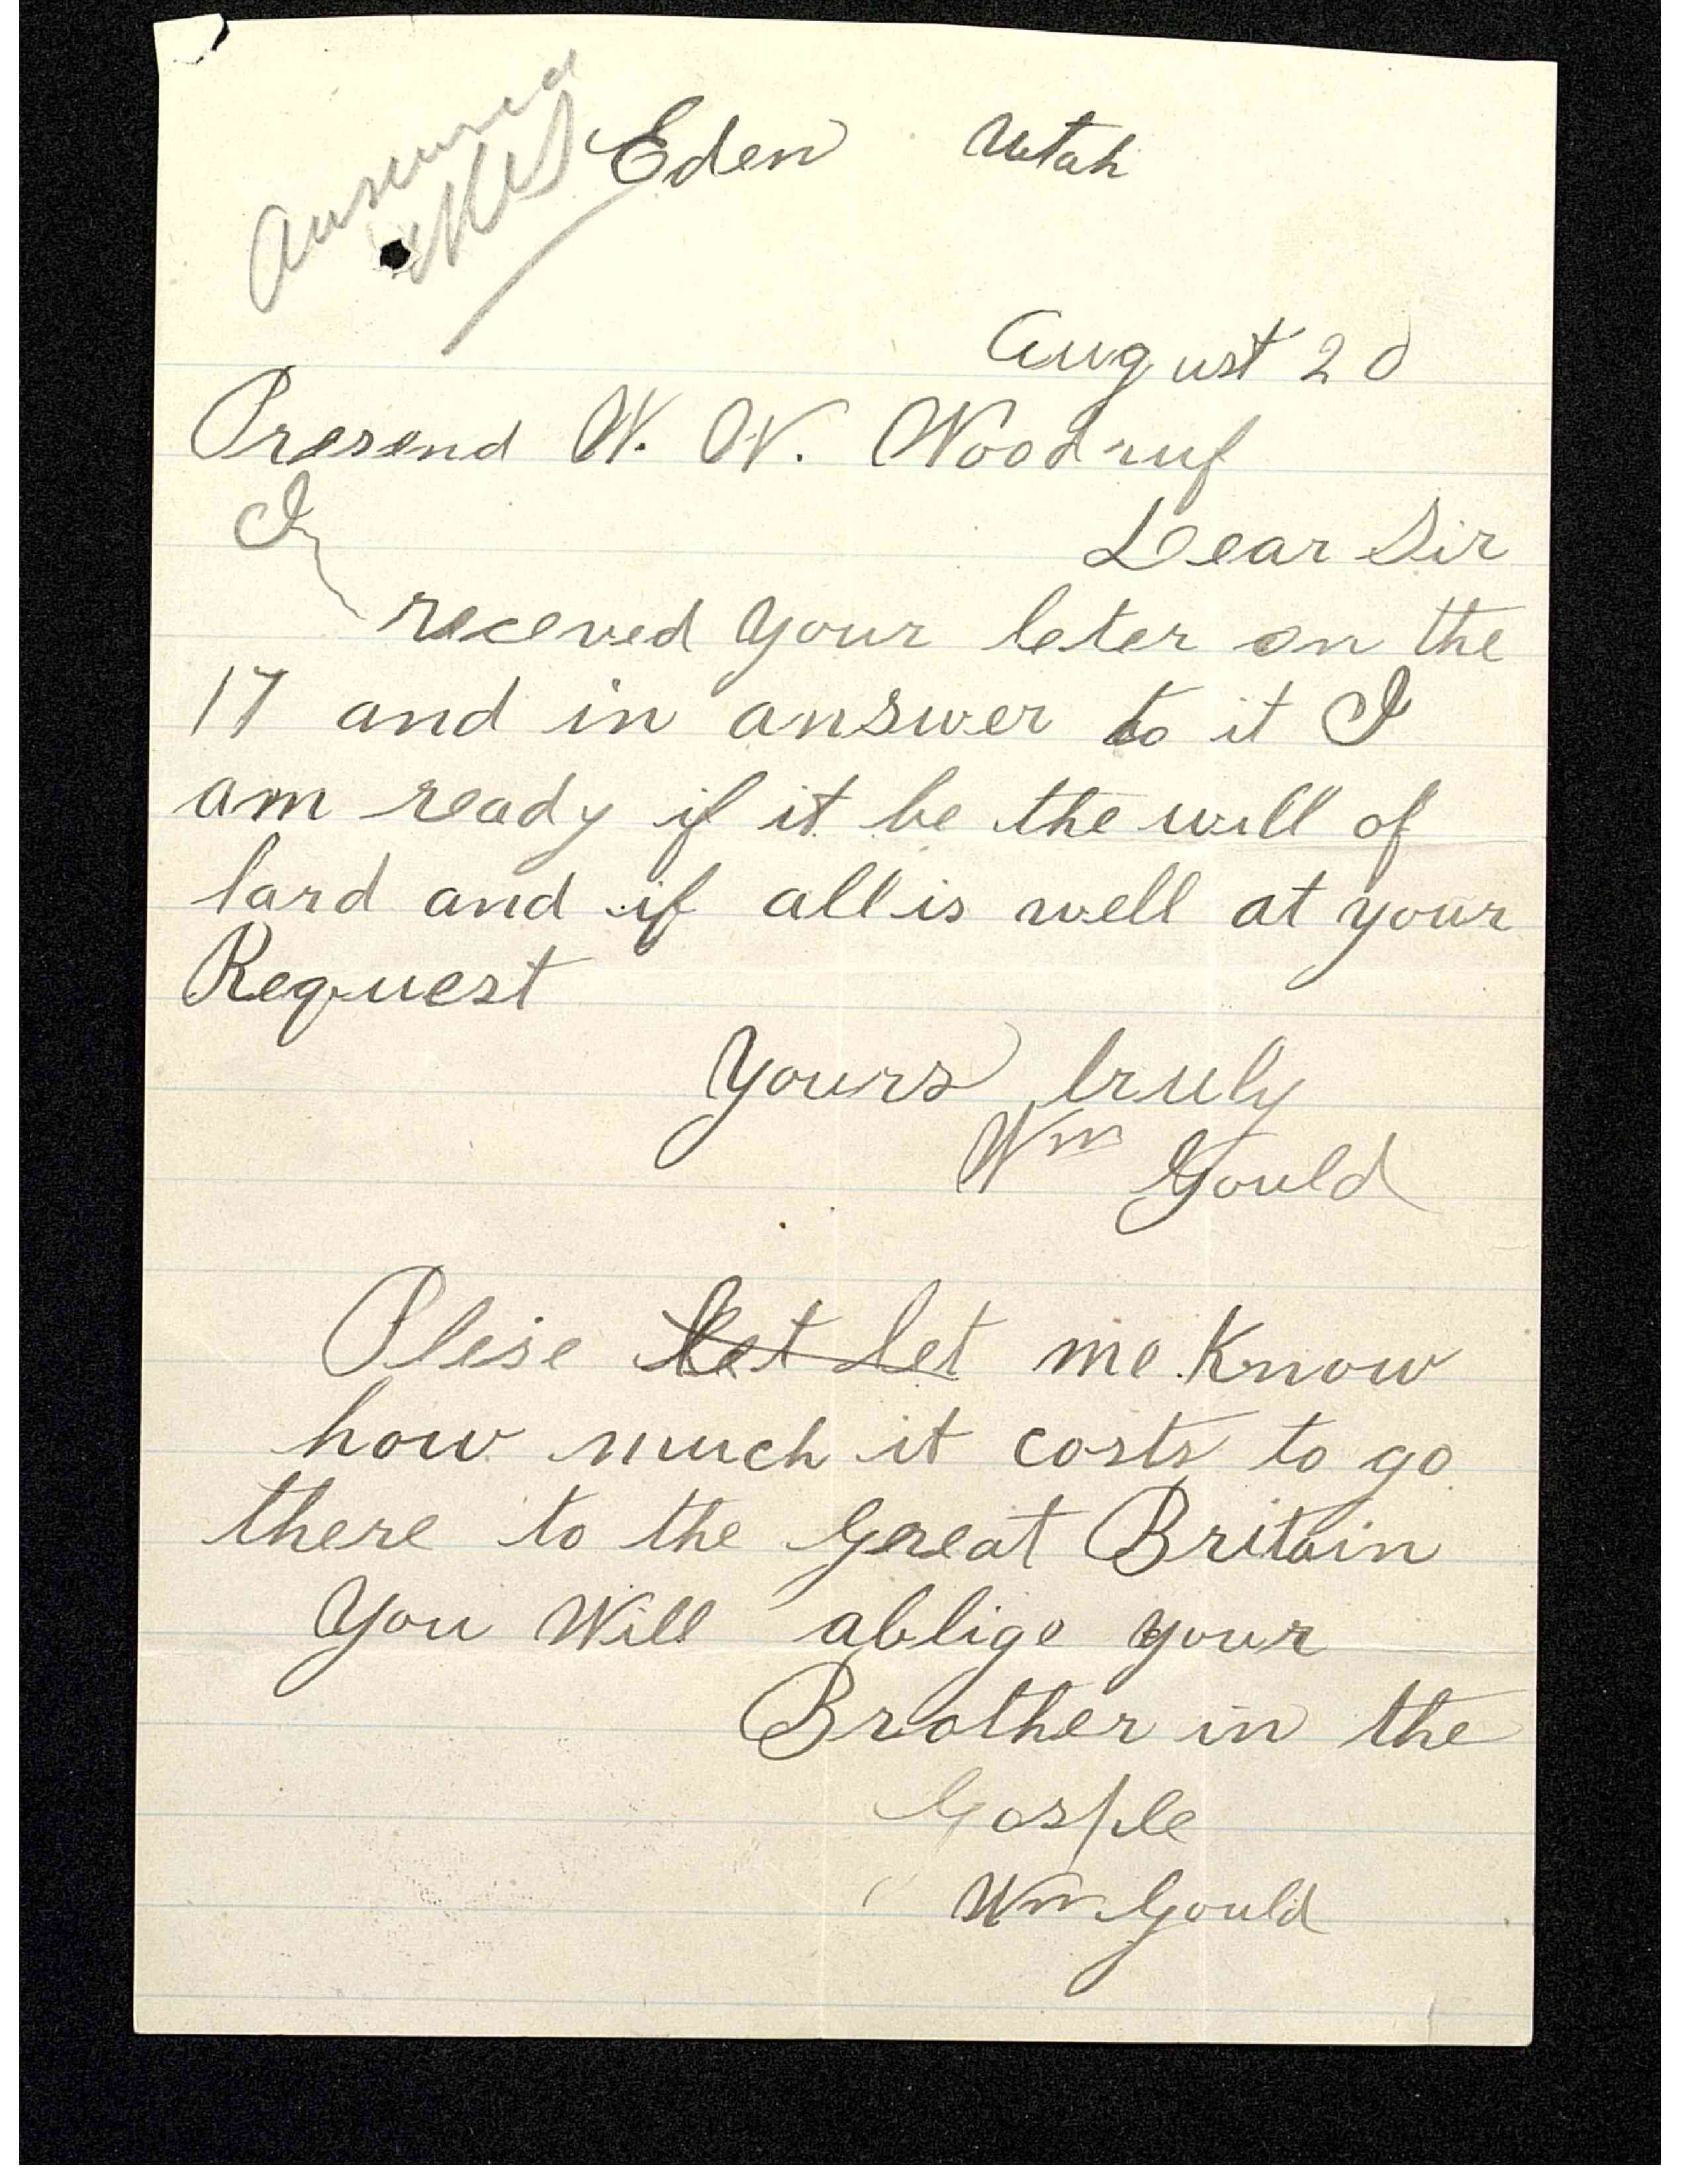 Answered
Eden Utah
August 20
Presend W. W. Woodruf
Dear Sir
I
receved your leter on the
17 and in answer to it I
am ready if it be the will of
lard and if all is well at your
Request
Yours truly
Wm Gould
Plese let let me know
how much it costs to go
there to the Great Britain
You Will ablige your
Brother in the
Gosple
Wm Gould